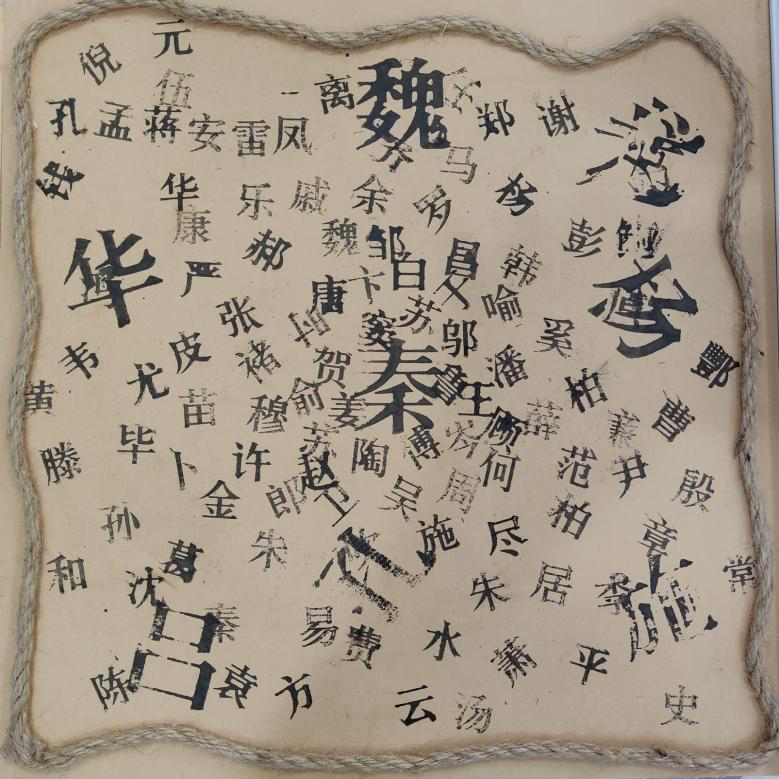 元
倪
伍
离 魏
孔 孟 蒋 安 雷 凤
郑 谢
马
华 乐 戚 余 罗
康
郝 魏 邹 昌 韩 彭
华 严 唐 卞 白
喻
张 苏
窦 邬 奚
韦 皮 褚 贺 秦 潘 酆
尤 柏
黄 苗 穆 俞 姜 王 薛 曹
顾
毕 卜 许 苏 赵 陶 傅 何 范 尹
滕 金 郎 卫 吴 周 殷
孙 柏
朱 施 尽 章
和 葛 常
沈 朱 居 李 施
吕 秦 易 费 水
萧 平
陈 袁 方 云 汤 史